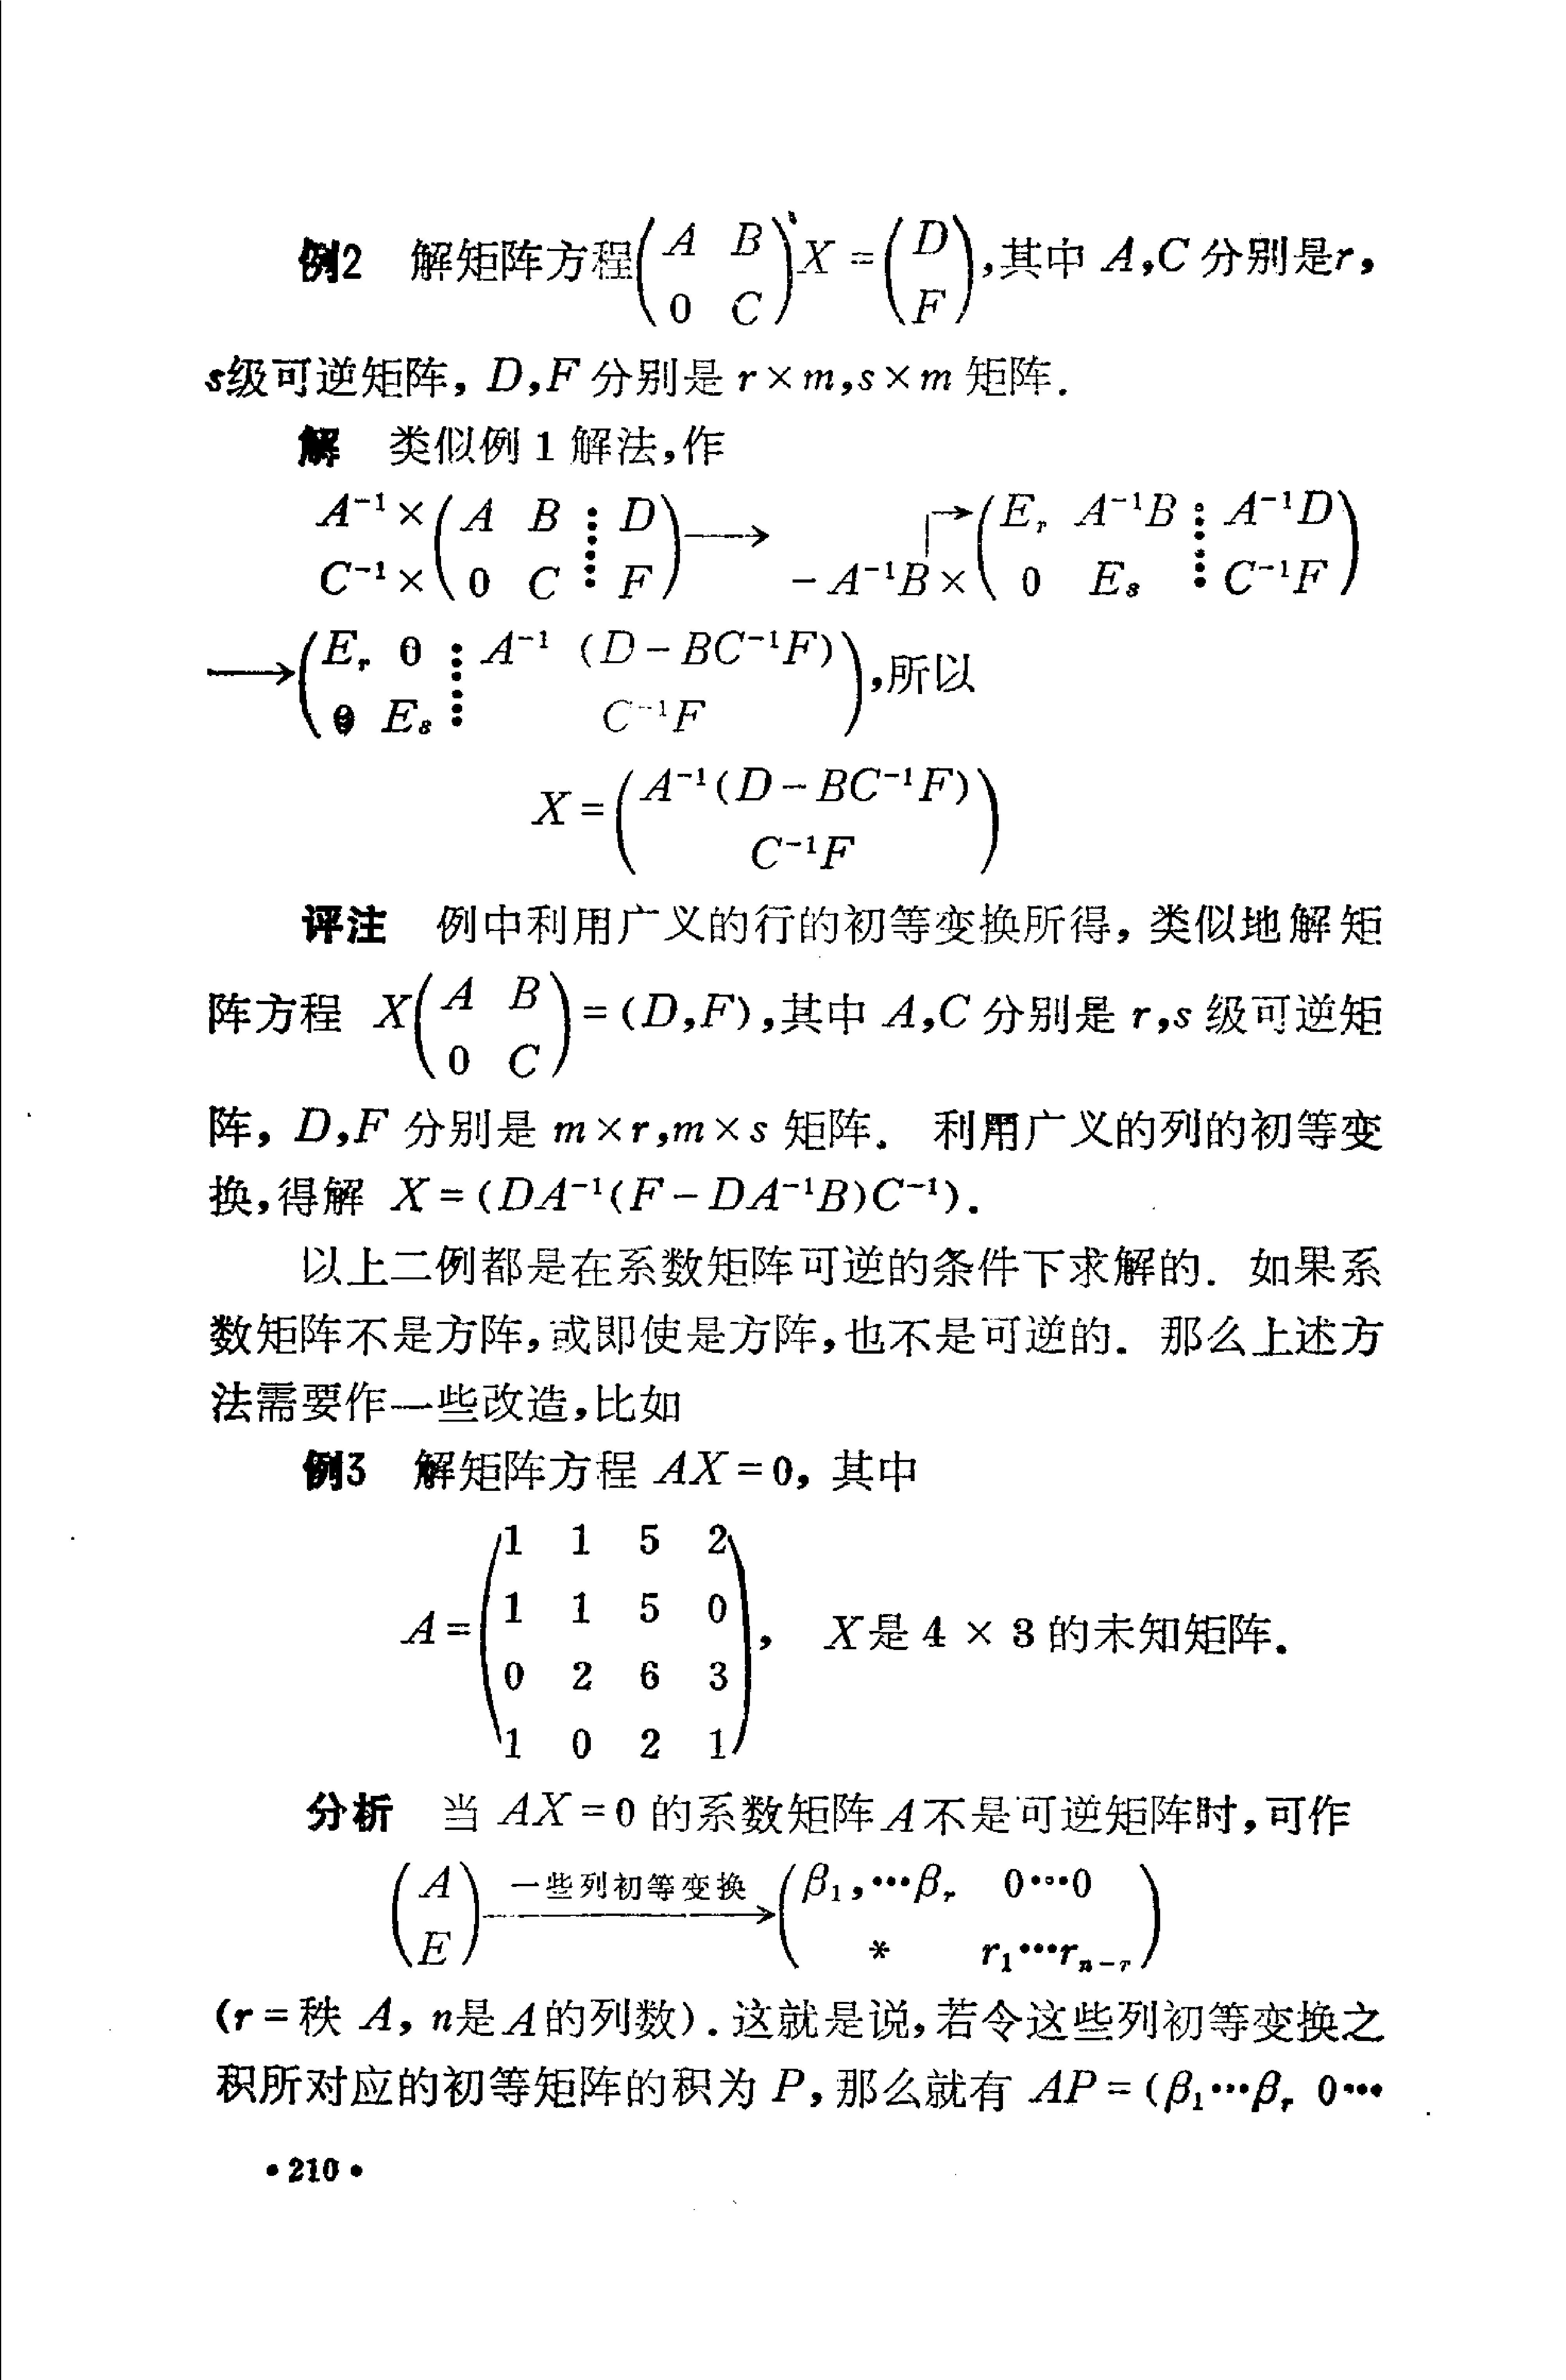 例2 解矩阵方程$\begin{pmatrix} A & B \\ 0 & C \end{pmatrix}X=\begin{pmatrix} D \\ F \end{pmatrix}$,其中 A,C 分别是r,
s级可逆矩阵, D,F 分别是 r×m,s×m 矩阵.
解 类似例 1 解法,作
$\begin{matrix} A^{-1}\times \\ C^{-1}\times \end{matrix}\begin{pmatrix} A & B & \vdots & D \\ 0 & C & \vdots & F \end{pmatrix}\longrightarrow -A^{-1}B\times\begin{pmatrix} E_r & A^{-1}B & \vdots & A^{-1}D \\ 0 & E_s & \vdots & C^{-1}F \end{pmatrix}$
$\longrightarrow\begin{pmatrix} E_r & 0 & \vdots & A^{-1}(D-BC^{-1}F) \\ 0 & E_s & \vdots & C^{-1}F \end{pmatrix}$,所以
$X=\begin{pmatrix} A^{-1}(D-BC^{-1}F) \\ C^{-1}F \end{pmatrix}$
评注 例中利用广义的行的初等变换所得, 类似地解矩
阵方程 $X\begin{pmatrix} A & B \\ 0 & C \end{pmatrix}=(D,F)$,其中 A,C 分别是 r,s 级可逆矩
阵, D,F 分别是 m×r,m×s 矩阵. 利用广义的列的初等变
换,得解 $X=(DA^{-1}(F-DA^{-1}B)C^{-1})$.
以上二例都是在系数矩阵可逆的条件下求解的. 如果系
数矩阵不是方阵,或即使是方阵,也不是可逆的. 那么上述方
法需要作一些改造,比如
例3 解矩阵方程 AX=0, 其中
$A=\begin{pmatrix} 1 & 1 & 5 & 2 \\ 1 & 1 & 5 & 0 \\ 0 & 2 & 6 & 3 \\ 1 & 0 & 2 & 1 \end{pmatrix}$, X是 4 × 3 的未知矩阵.
分析 当 AX=0 的系数矩阵A不是可逆矩阵时,可作
$\begin{pmatrix} A \\ E \end{pmatrix}\xrightarrow{一些列初等变换}\begin{pmatrix} \beta_1,\cdots\beta_r & 0\cdots0 \\ * & r_1\cdots r_{n-r} \end{pmatrix}$
(r=秩 A, n是A的列数).这就是说,若令这些列初等变换之
积所对应的初等矩阵的积为 P,那么就有 $AP=(\beta_1\cdots\beta_r\ 0\cdots$
•210•